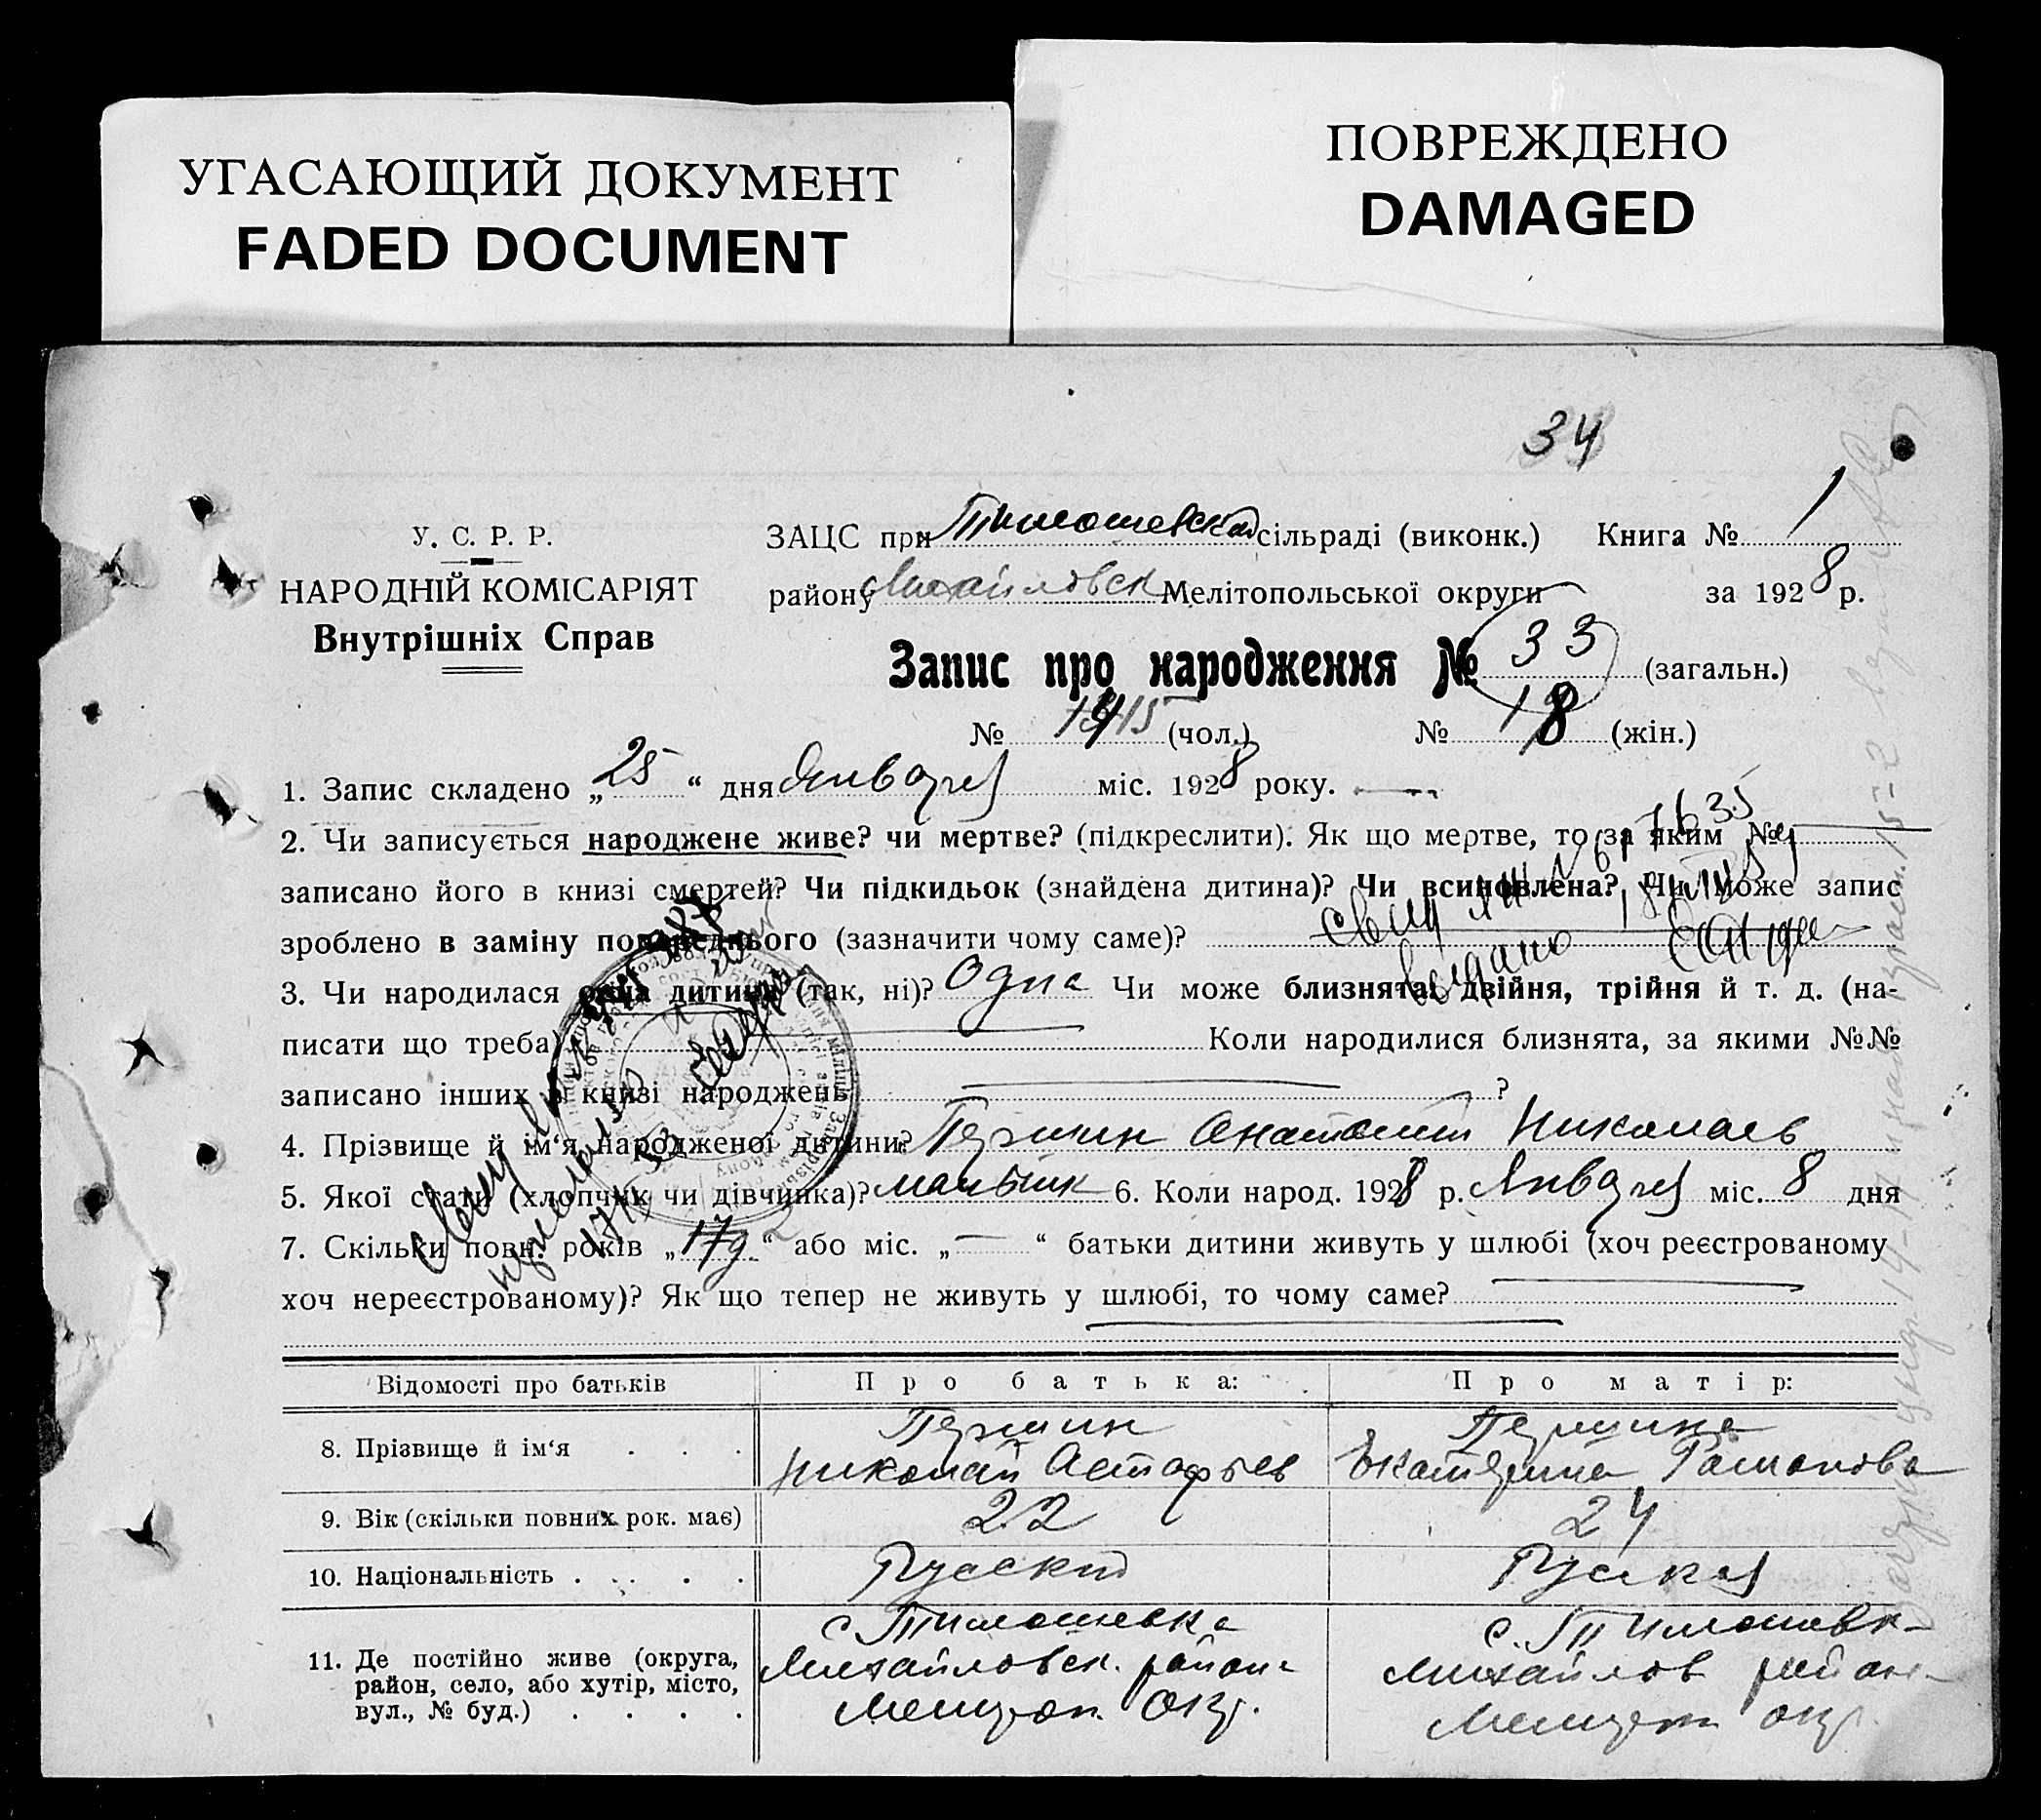 УГАСАЮЩИЙ ДОКУМЕНТ
FADED DOCUMENT
ПОВРЕЖДЕНО
DAMAGED
34
У. С. Р. Р.
НАРОДНІЙ КОМІСАРІЯТ
Внутрішніх Справ
ЗАЦС при Тимошевской сільраді (виконк.) Книга № 1
району Михайловск Мелітопольської округи за 1928 р.
Запис про народження № 33 (загальн.)
№ 15 (чол.) № 18 (жін.)
1. Запис складено „25“ дня Января міс. 1928 року.
2. Чи записується народжене живе? чи мертве? (підкреслити). Як що мертве, то за яким №
записано його в книзі смертей? Чи підкидьок (знайдена дитина)? Чи всиновлена? Чи може запис
зроблено в заміну попереднього (зазначити чому саме)?
3. Чи народилася одна дитина (так, ні)? Одна Чи може близнята: двійня, трійня й т. д. (на-
писати що треба) Коли народилися близнята, за якими №№
записано інших в книзі народжень ?
4. Прізвище й ім'я народженої дитини? Першин Анатолий Николаев
5. Якої стати (хлопчик чи дівчинка)? мальчик 6. Коли народ. 1928 р. Января міс. 8 дня
7. Скільки повн. років „ “ або міс. „—“ батьки дитини живуть у шлюбі (хоч реєстрованому
хоч нереєстрованому)? Як що тепер не живуть у шлюбі, то чому саме?
Відомості про батьків Про батька: Про матір:
8. Прізвище й ім'я . . . Першин Першина
Николай Астафьев Екатерина Романова
9. Вік (скільки повних рок. має) 22 24
10. Національність . . . . Русский Руская
11. Де постійно живе (округа, район, село, або хутір, місто, вул., № буд.) . . . .
с Тимошевка
Михайловск. района
Мелитоп. Окр.
с. Тимошевк
Михайлов район
Мелитоп окр.